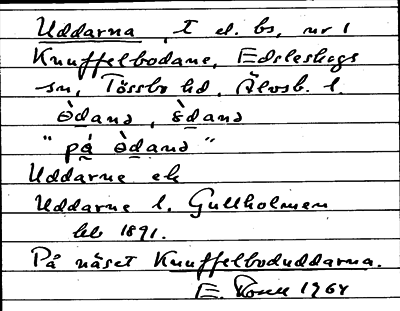 Uddarna, t el. bs, nr 1
Knuffelbodane, Edsleskogs
sn, Tössbo hd, Älvsb. l.
òdanə, òdanə
"på òdanə"
Uddarne ek
Uddarne l. Gullholmen
leb 1891.
På näset Knuffelboduddarna.
E. 1964